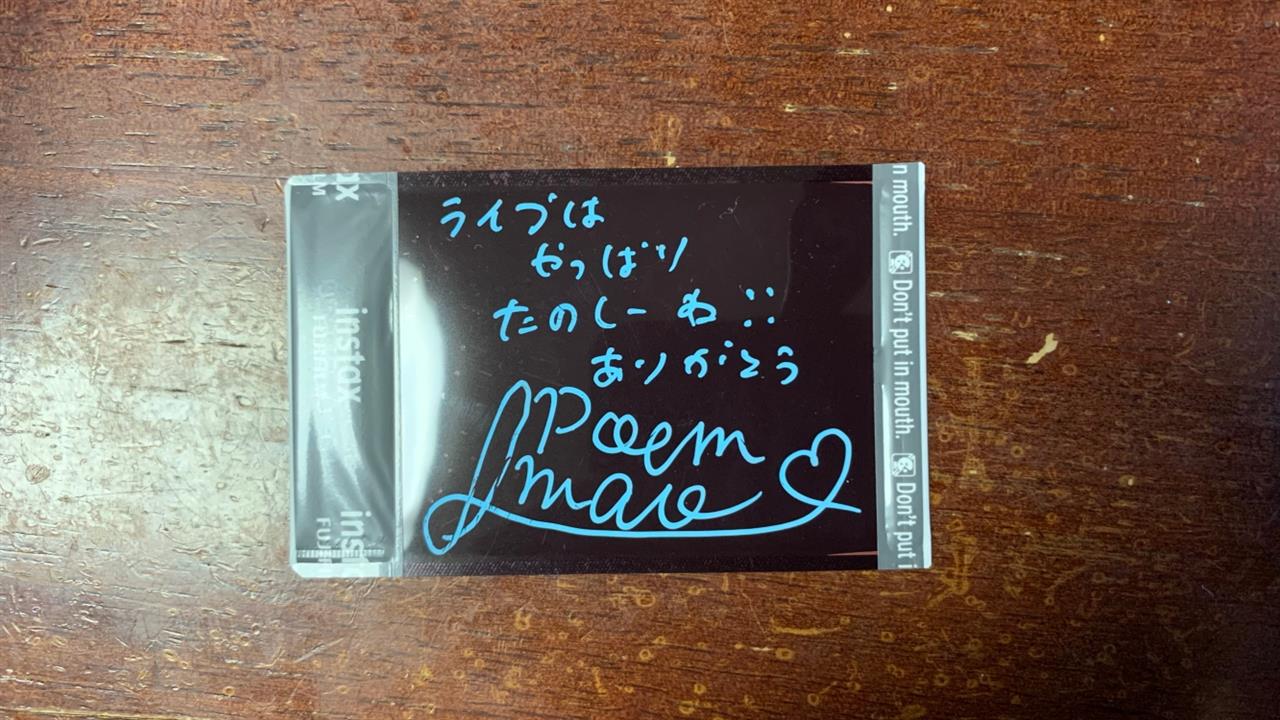 ライブは
やっぱり
たのしーね!!
ありがとう
Poem
mao
instax
FUJIFILM
ins
FUJ
n mouth.
Don't put in mouth.
Don't put i